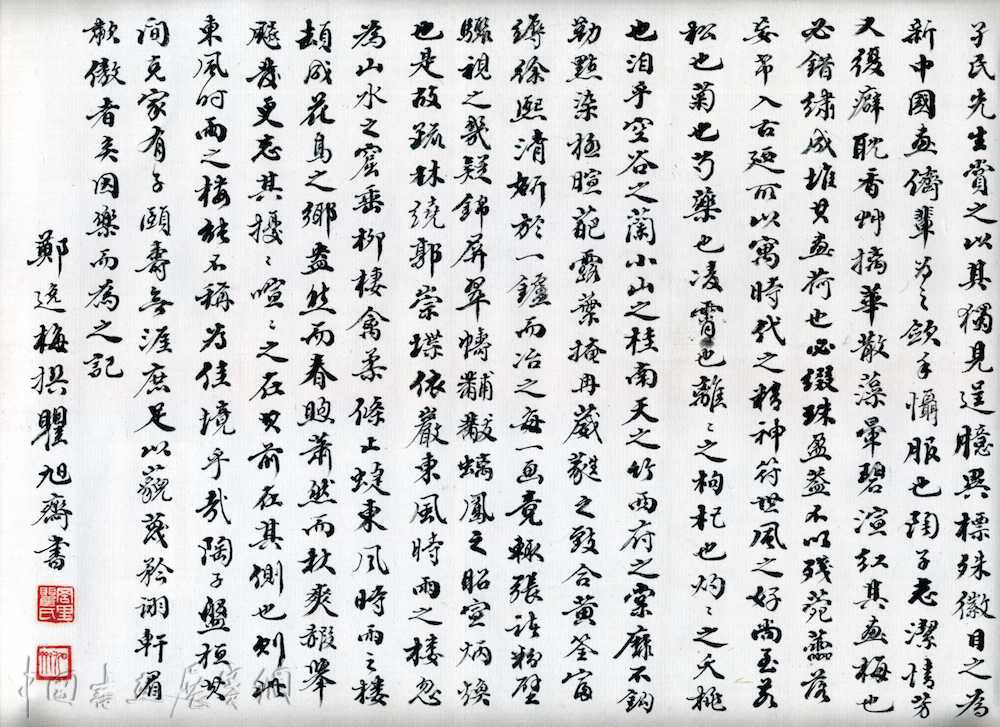 子民先生賞之以其獨見逞臆異標殊徽目之為
新中國畫儕輩為之頷手懾服也陶子志潔情芳
又復癖耽香艸摛華散藻暈碧渲紅其畫梅也
必錯繡成堆其畫荷也必綴珠盈益不以殘菀蘦落
妄帋入古廼所以寓時代之精神符世風之好尚至若
松也菊也芍藥也凌霄也離之之枸杞也灼之之夭桃
也洎乎空谷之蘭小山之桂南天之竹西府之棠靡不鈎
勒點染極暄葩露葉掩冉葳蕤之致合黃筌富
縟徐熙清妍於一鑪而冶之每一畫竟輒張諸粉壁
驟視之幾疑錦屏翠幬黼黻螭鳳之昭宣炳煥
也是故疏林繞郭崇堞依巖東風時雨之樓忽
為山水之窟垂柳棲禽柔條上蜨東風時雨之樓
頡成花鳥之鄉盎然而春煦蕭然而秋爽嘏舉
飈發更忘其擾之喧之在其前在其側也則
東風時雨之樓能不稱為佳境乎哉陶子盤桓其
間克家有子頤壽無涯庶足以藐蔑矜詡軒眉
欹傲者矣因樂而為之記
鄭逸梅撰瞿旭齋書